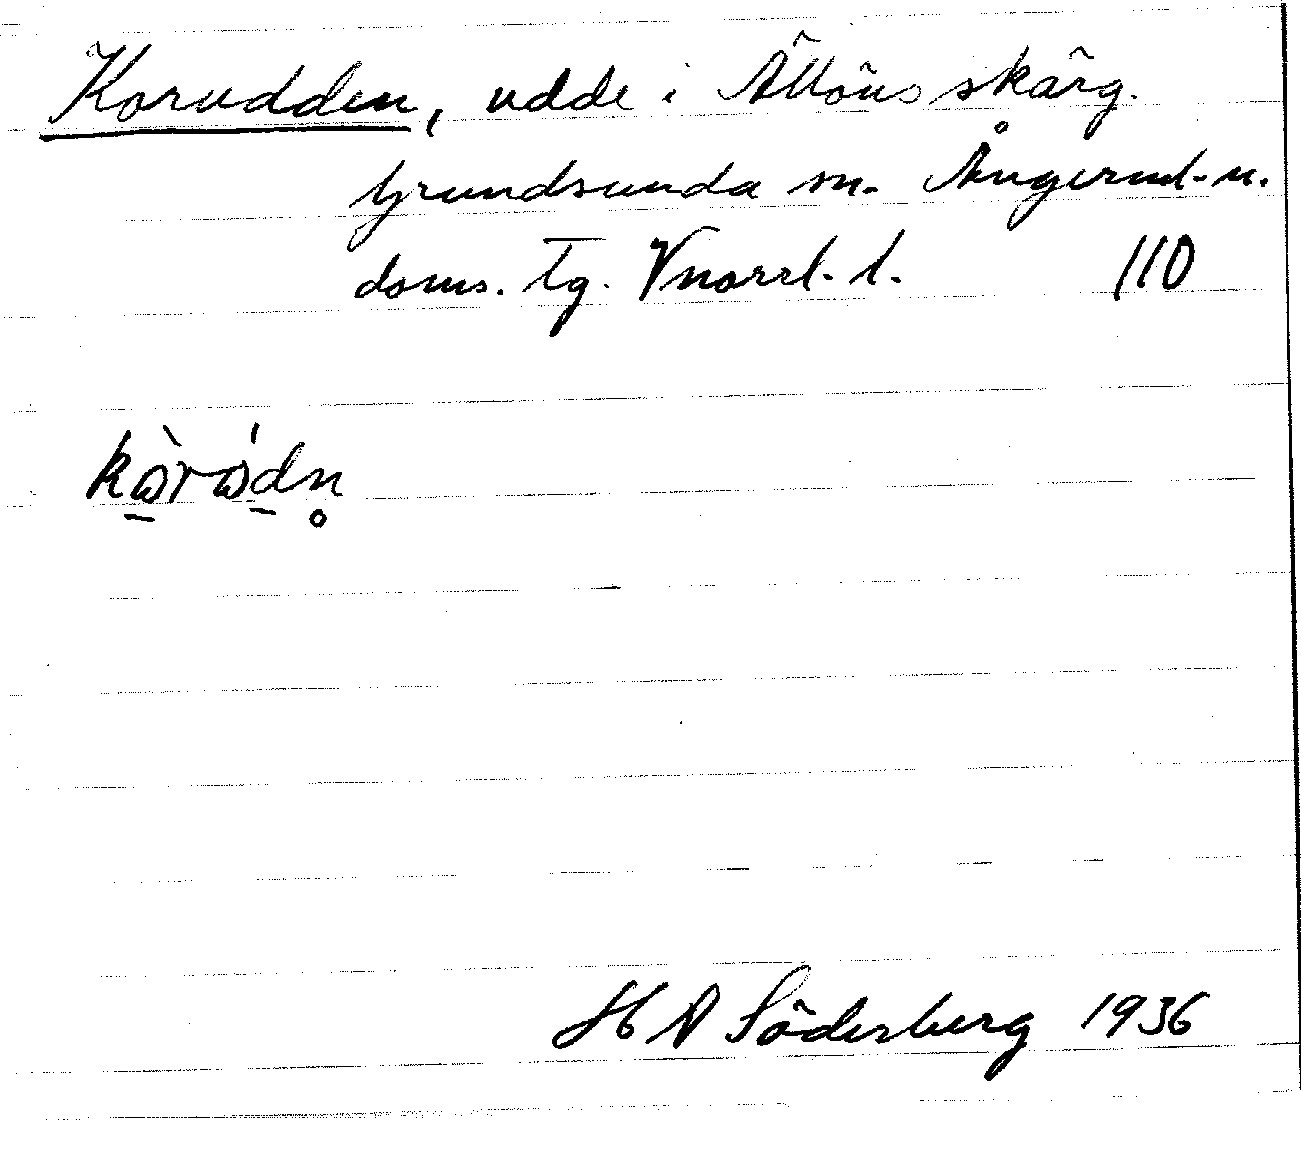 Korudden, udde i Ällöns skärg.
Grundsunda sn. Ångerml. n.
doms. tg. Vnorrl. l. 110
H A Söderberg 1936